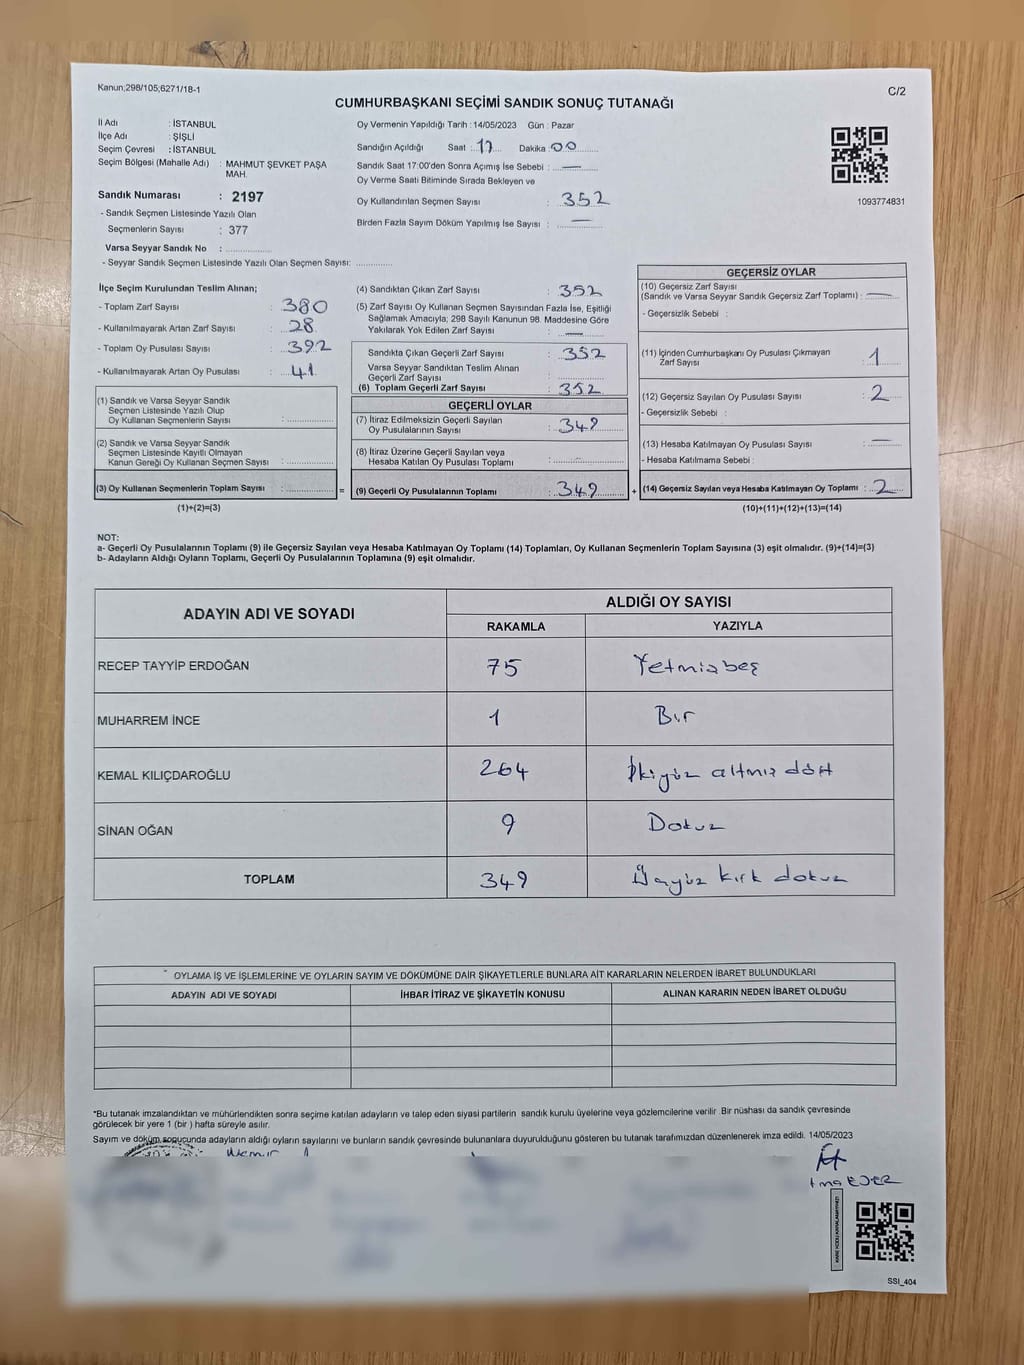 Kanun;298/105;6271/18-1
C/2
CUMHURBAŞKANI SEÇİMİ SANDIK SONUÇ TUTANAĞI
İl Adı : İSTANBUL
İlçe Adı : ŞİŞLİ
Seçim Çevresi : İSTANBUL
Seçim Bölgesi (Mahalle Adı) : MAHMUT ŞEVKET PAŞA
MAH.
Sandık Numarası : 2197
- Sandık Seçmen Listesinde Yazılı Olan
Seçmenlerin Sayısı : 377
Varsa Seyyar Sandık No :
- Seyyar Sandık Seçmen Listesinde Yazılı Olan Seçmen Sayısı:
Oy Vermenin Yapıldığı Tarih : 14/05/2023 Gün : Pazar
Sandığın Açıldığı Saat : 17 Dakika : 00
Sandık Saat 17:00'den Sonra Açımış İse Sebebi : —
Oy Verme Saati Bitiminde Sırada Bekleyen ve
Oy Kullandırılan Seçmen Sayısı : 352
Birden Fazla Sayım Döküm Yapılmış İse Sayısı : —
1093774831
İlçe Seçim Kurulundan Teslim Alınan;
- Toplam Zarf Sayısı : 380
- Kullanılmayarak Artan Zarf Sayısı : 28
- Toplam Oy Pusulası Sayısı : 392
- Kullanılmayarak Artan Oy Pusulası : 41
(1) Sandık ve Varsa Seyyar Sandık
Seçmen Listesinde Yazılı Olup
Oy Kullanan Seçmenlerin Sayısı :
(2) Sandık ve Varsa Seyyar Sandık
Seçmen Listesinde Kayıtlı Olmayan
Kanun Gereği Oy Kullanan Seçmen Sayısı :
(3) Oy Kullanan Seçmenlerin Toplam Sayısı :
(1)+(2)=(3)
(4) Sandıktan Çıkan Zarf Sayısı : 352
(5) Zarf Sayısı Oy Kullanan Seçmen Sayısından Fazla İse, Eşitliği
Sağlamak Amacıyla; 298 Sayılı Kanunun 98. Maddesine Göre
Yakılarak Yok Edilen Zarf Sayısı : —
Sandıkta Çıkan Geçerli Zarf Sayısı : 352
Varsa Seyyar Sandıktan Teslim Alınan
Geçerli Zarf Sayısı :
(6) Toplam Geçerli Zarf Sayısı : 352
GEÇERLİ OYLAR
(7) İtiraz Edilmeksizin Geçerli Sayılan
Oy Pusulalarının Sayısı : 349
(8) İtiraz Üzerine Geçerli Sayılan veya
Hesaba Katılan Oy Pusulası Toplamı :
= (9) Geçerli Oy Pusulalarının Toplamı : 349
GEÇERSİZ OYLAR
(10) Geçersiz Zarf Sayısı
(Sandık ve Varsa Seyyar Sandık Geçersiz Zarf Toplamı) : —
- Geçersizlik Sebebi :
(11) İçinden Cumhurbaşkanı Oy Pusulası Çıkmayan
Zarf Sayısı : 1
(12) Geçersiz Sayılan Oy Pusulası Sayısı : 2
- Geçersizlik Sebebi :
(13) Hesaba Katılmayan Oy Pusulası Sayısı : —
- Hesaba Katılmama Sebebi :
+ (14) Geçersiz Sayılan veya Hesaba Katılmayan Oy Toplamı : 2
(10)+(11)+(12)+(13)=(14)
NOT:
a- Geçerli Oy Pusulalarının Toplamı (9) ile Geçersiz Sayılan veya Hesaba Katılmayan Oy Toplamı (14) Toplamları, Oy Kullanan Seçmenlerin Toplam Sayısına (3) eşit olmalıdır. (9)+(14)=(3)
b- Adayların Aldığı Oyların Toplamı, Geçerli Oy Pusulalarının Toplamına (9) eşit olmalıdır.
ADAYIN ADI VE SOYADI
ALDIĞI OY SAYISI
RAKAMLA YAZIYLA
RECEP TAYYİP ERDOĞAN 75 Yetmişbeş
MUHARREM İNCE 1 Bir
KEMAL KILIÇDAROĞLU 264 İkiyüz altmış dört
SİNAN OĞAN 9 Dokuz
TOPLAM 349 Üçyüz kırk dokuz
OYLAMA İŞ VE İŞLEMLERİNE VE OYLARIN SAYIM VE DÖKÜMÜNE DAİR ŞİKAYETLERLE BUNLARA AİT KARARLARIN NELERDEN İBARET BULUNDUKLARI
ADAYIN ADI VE SOYADI İHBAR İTİRAZ VE ŞİKAYETİN KONUSU ALINAN KARARIN NEDEN İBARET OLDUĞU
*Bu tutanak imzalandıktan ve mühürlendikten sonra seçime katılan adayların ve talep eden siyasi partilerin sandık kurulu üyelerine veya gözlemcilerine verilir. Bir nüshası da sandık çevresinde
görülecek bir yere 1 (bir) hafta süreyle asılır.
Sayım ve döküm sonucunda adayların aldığı oyların sayılarını ve bunların sandık çevresinde bulunanlara duyurulduğunu gösteren bu tutanak tarafımızdan düzenlenerek imza edildi. 14/05/2023
SSI_404